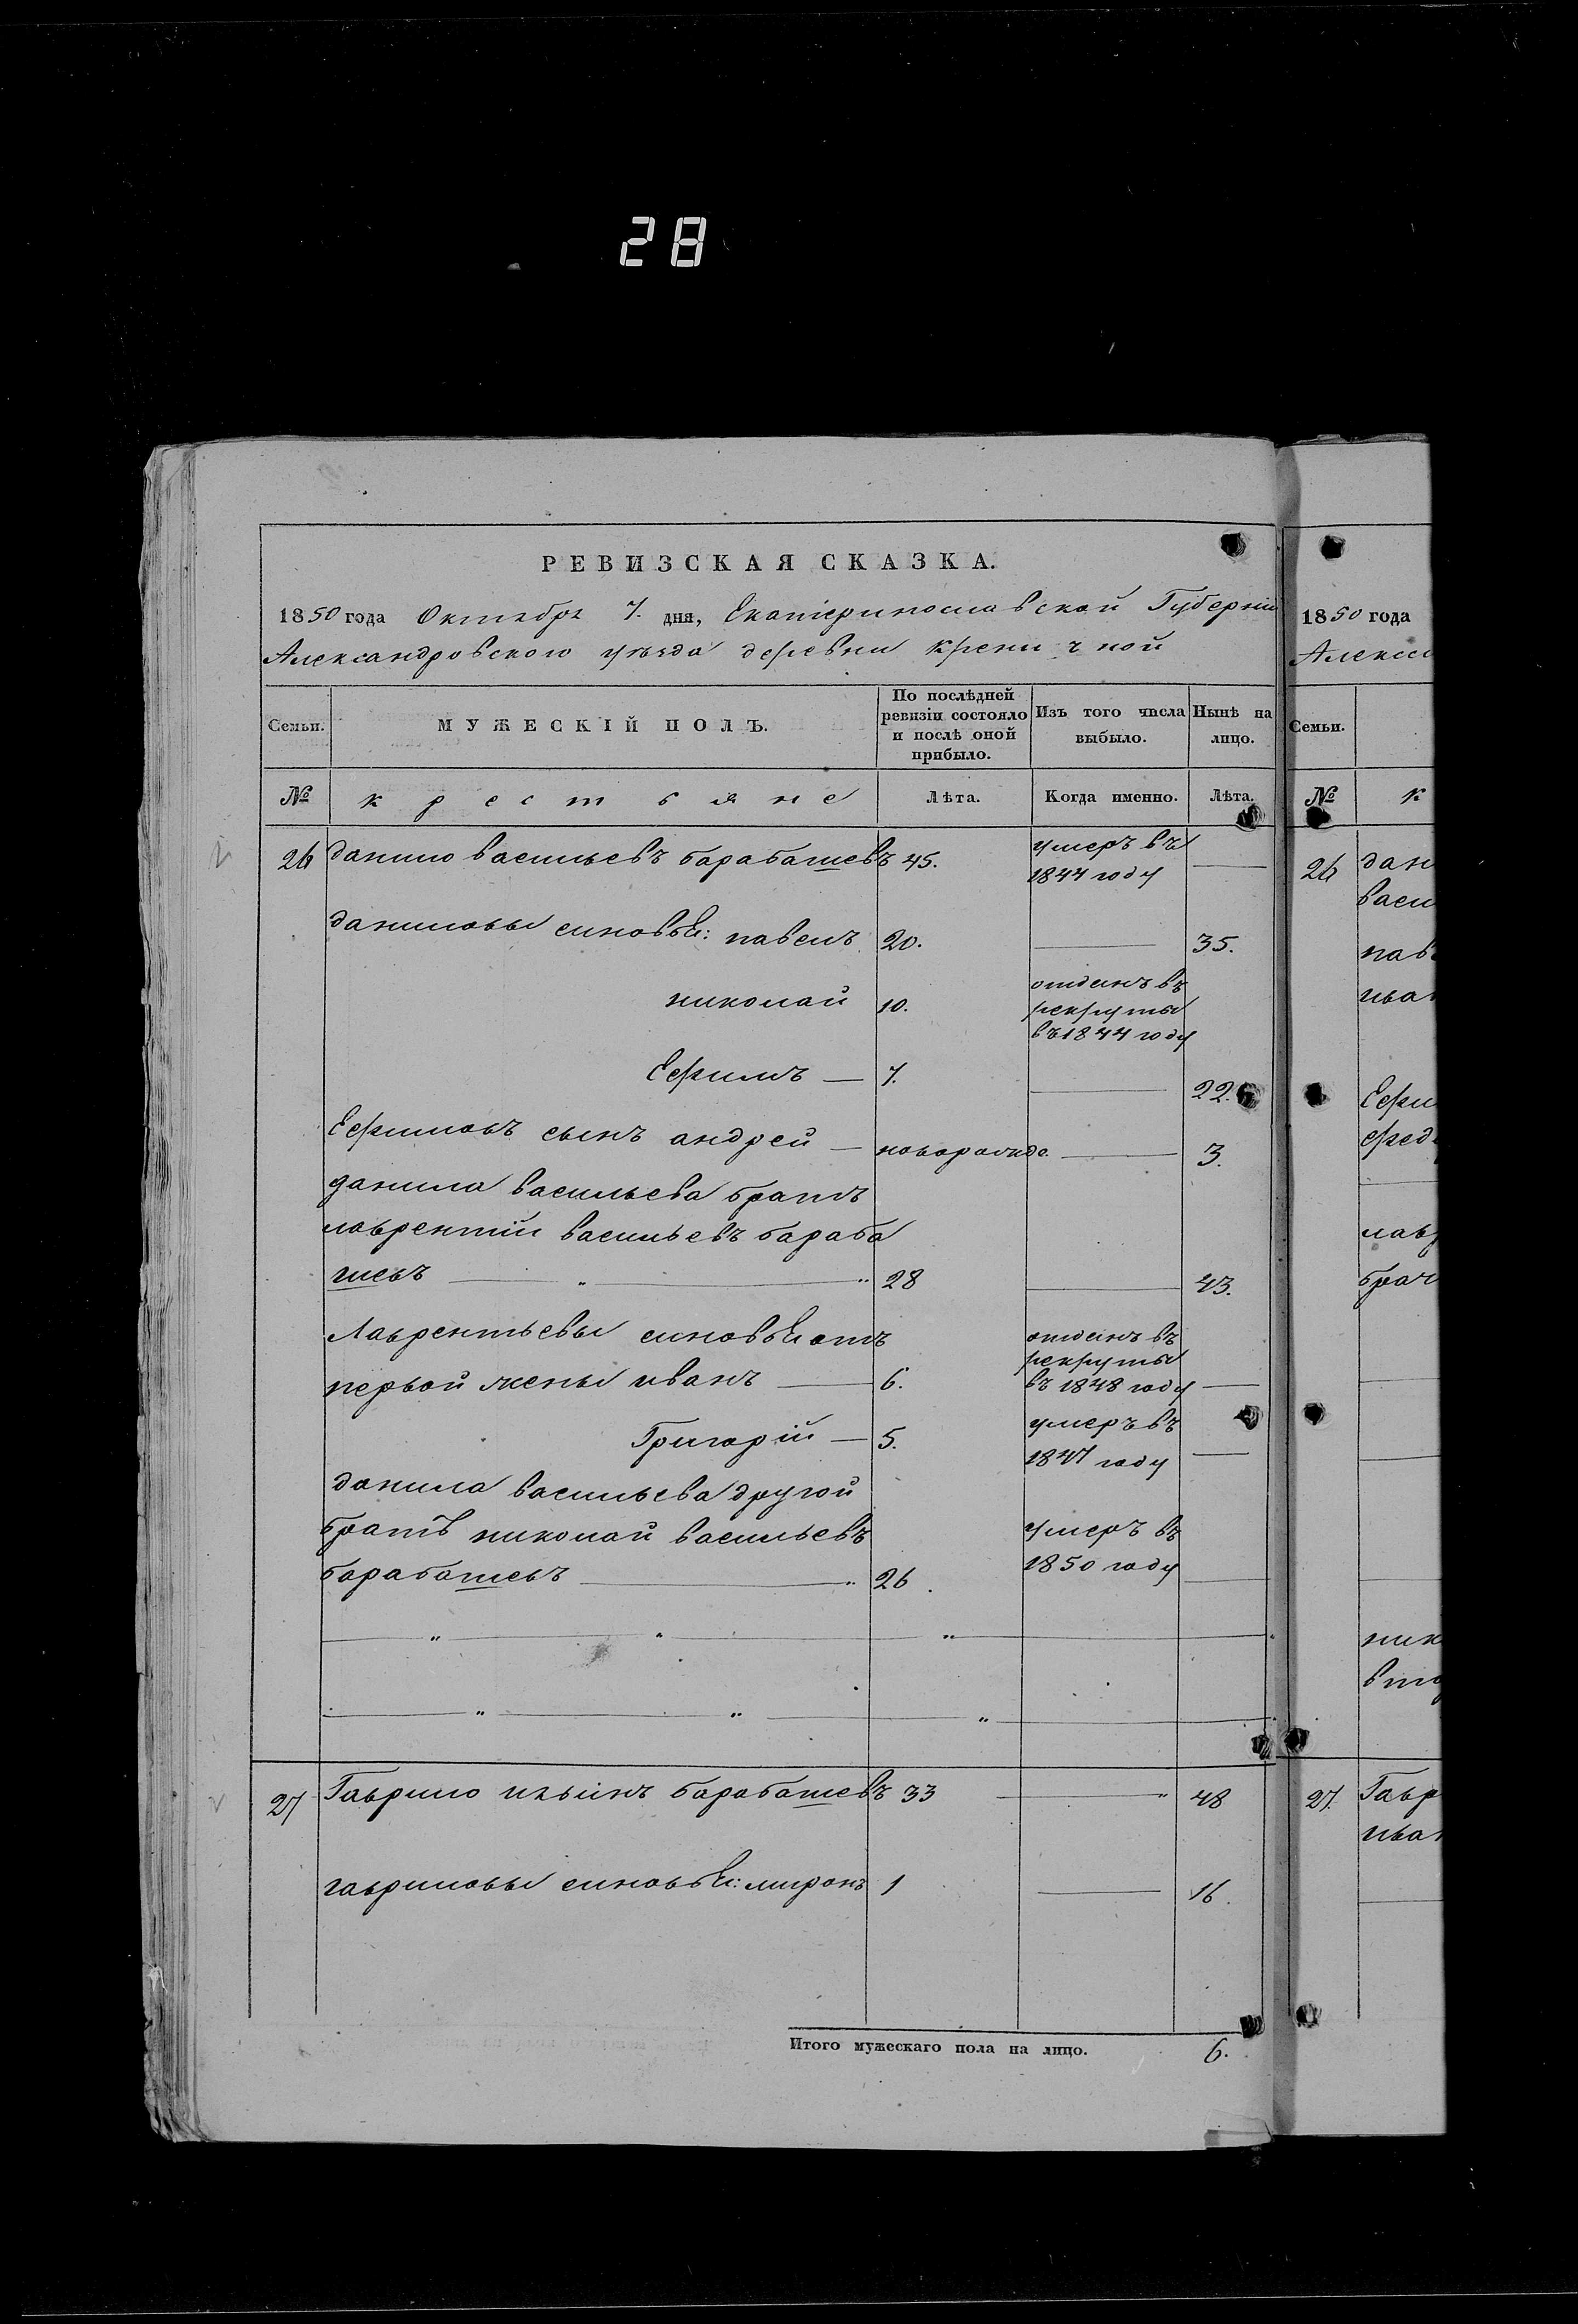 28
РЕВИЗСКАЯ СКАЗКА.
1850 года Октября 7. дня, Екатеринославской Губерніи
Александровского уѣзда деревни Кремичной
1850 года
Алекса
Семьи. МУЖЕСКІЙ ПОЛЪ. По послѣдней ревизіи состояло и послѣ оной прибыло. Изъ того числа выбыло. Нынѣ на лицо. Семьи.
№ крестьяне Лѣта. Когда именно. Лѣта. № к
26 данило васильевъ барабашевъ 45. умеръ въ 1844 году
26 дан
васи
даниловы сыновья: павелъ 20. 35.
пав
николай 10. отданъ въ рекруты въ 1844 году
ива
Ефимъ 7. 22.
Ефи
Ефимовъ сынъ андрей новорожде. 3.
фед
данила васильева братъ
лаврентій васильевъ бараба
шевъ 28 43.
лав
брач
Лаврентьевы сыновья отъ
первой жены иванъ 6. отданъ въ рекруты въ 1848 году
Григорій 5. умеръ въ 1847 году
данила васильева другой
братъ николай васильевъ
барабашевъ 26. умеръ въ 1850 году
ник
вто
27 Гаврило ильинъ барабашевъ 33 48
27. Гавр
ива
гавриловы сыновья: миронъ 1 16.
Итого мужескаго пола на лицо. 6.